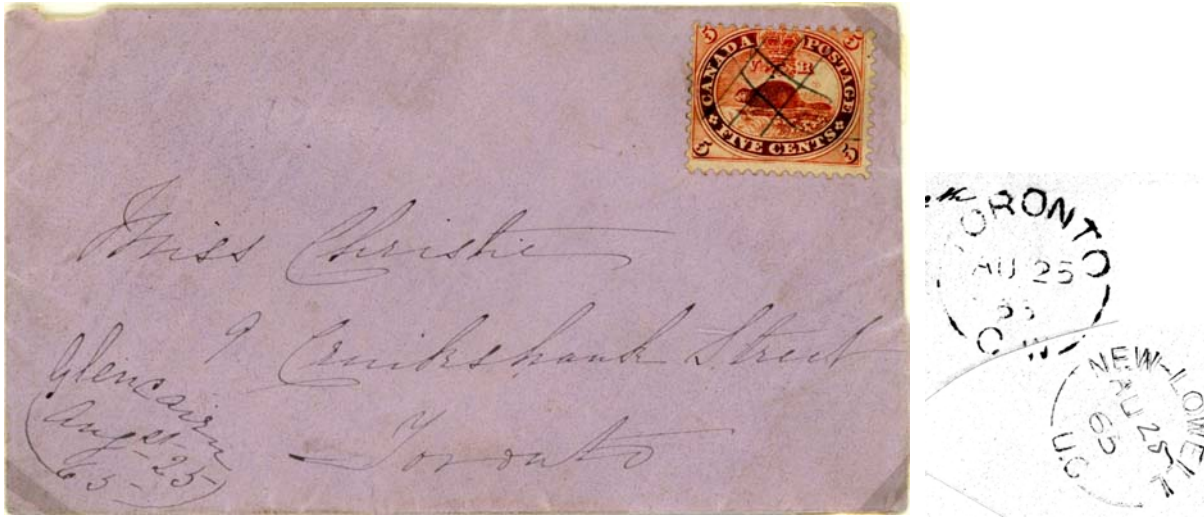 5 5
CANADA POSTAGE
V R
FIVE CENTS
5 5
Miss Christie
9 Cruikshank Street
Toronto
Glencairn
Augst 25
65
TORONTO
AU 25
65
C.W
NEW-LOWELL
AU 25
65
U.C